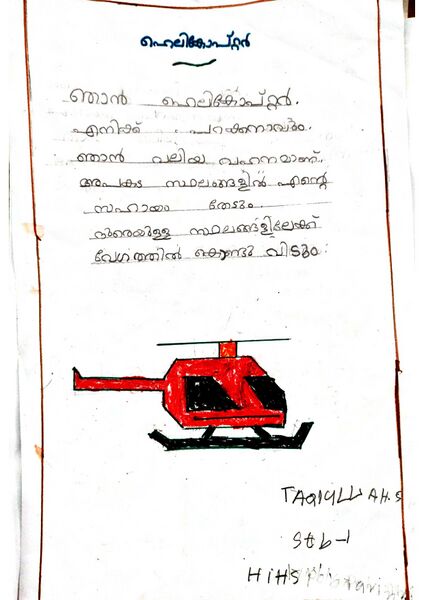 ഹെലികോപ്റ്റർ
ഞാൻ ഹെലികോപ്റ്റർ.
എനിക്ക് പറക്കനാവും.
ഞാൻ വലിയ വഹനയാണ്.
അപകട സ്ഥലങ്ങളിൽ എന്റെ
സഹായം തേടും.
ദൂരെയുള്ള സ്ഥലങ്ങളിലേക്ക്
വേഗത്തിൽ കൊണ്ടു വിടും.
TAQIYULLAH.S
Std-1
HIHS